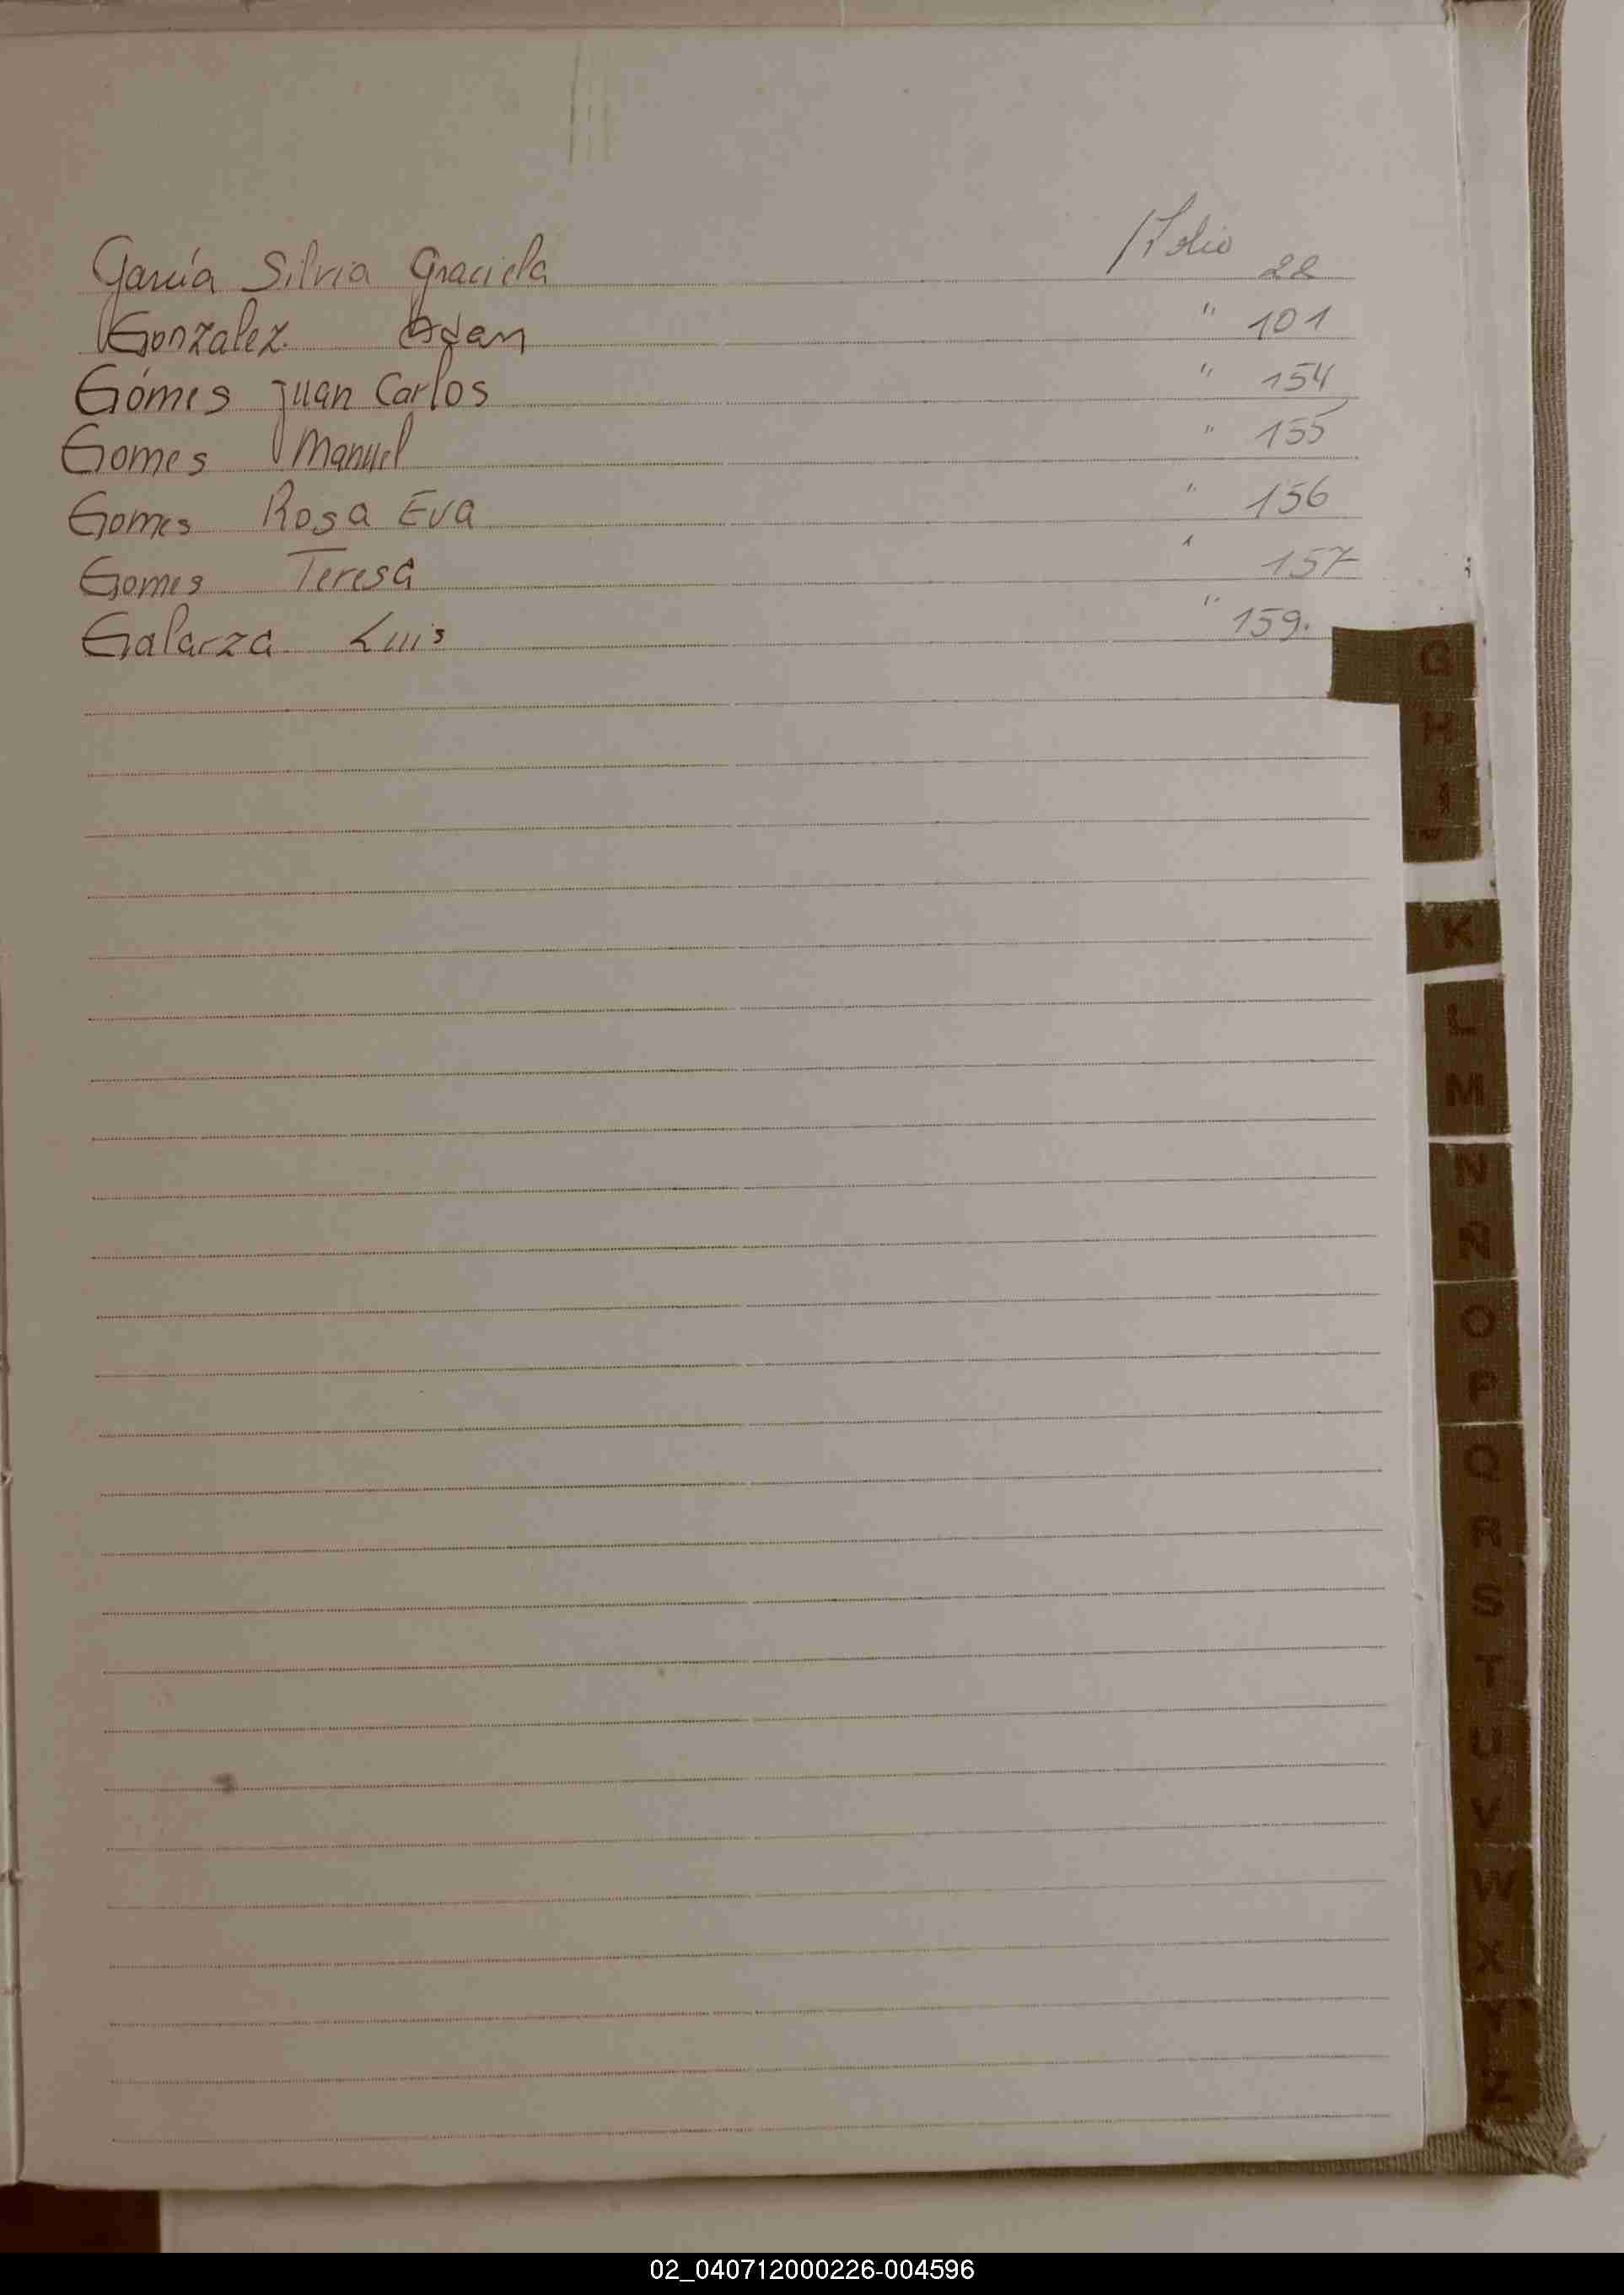 García Silvia Graciela Folio 28
Gonzalez Adan " 101
Gómes Juan Carlos " 154
Gomes Manuel " 155
Gomes Rosa Eva " 156
Gomes Teresa " 157
Galarza Luis " 159.
G
H
I
K
L
M
N
Ñ
O
P
Q
R
S
T
U
V
W
X
Y
Z
02_040712000226-004596